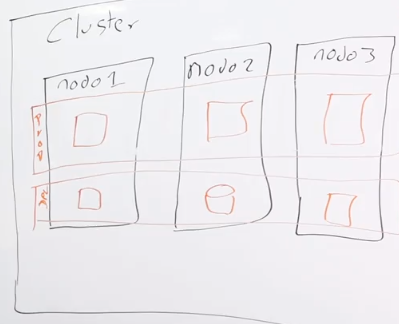 Cluster
nodo1
nodo2
nodo3
Prod